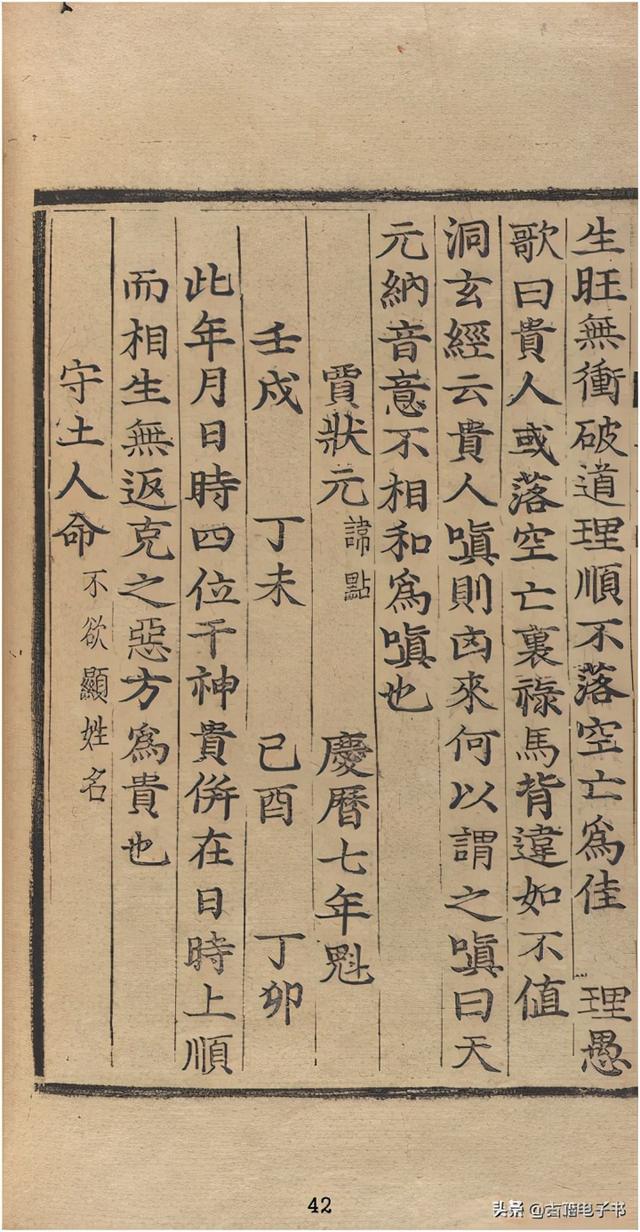 生旺無衝破道理順不落空亡為佳 理愚
歌曰貴人或落空亡裏祿馬背違如不值
洞玄經云貴人嗔則凶來何以謂之嗔曰天
元納音意不相和為嗔也
賈狀元 諱黯 慶曆七年魁
壬戌 丁未 己酉 丁卯
此年月日時四位干神貴併在日時上順
而相生無返克之惡方為貴也
守土人命 不欲顯姓名
42
头条 @古籍电子书